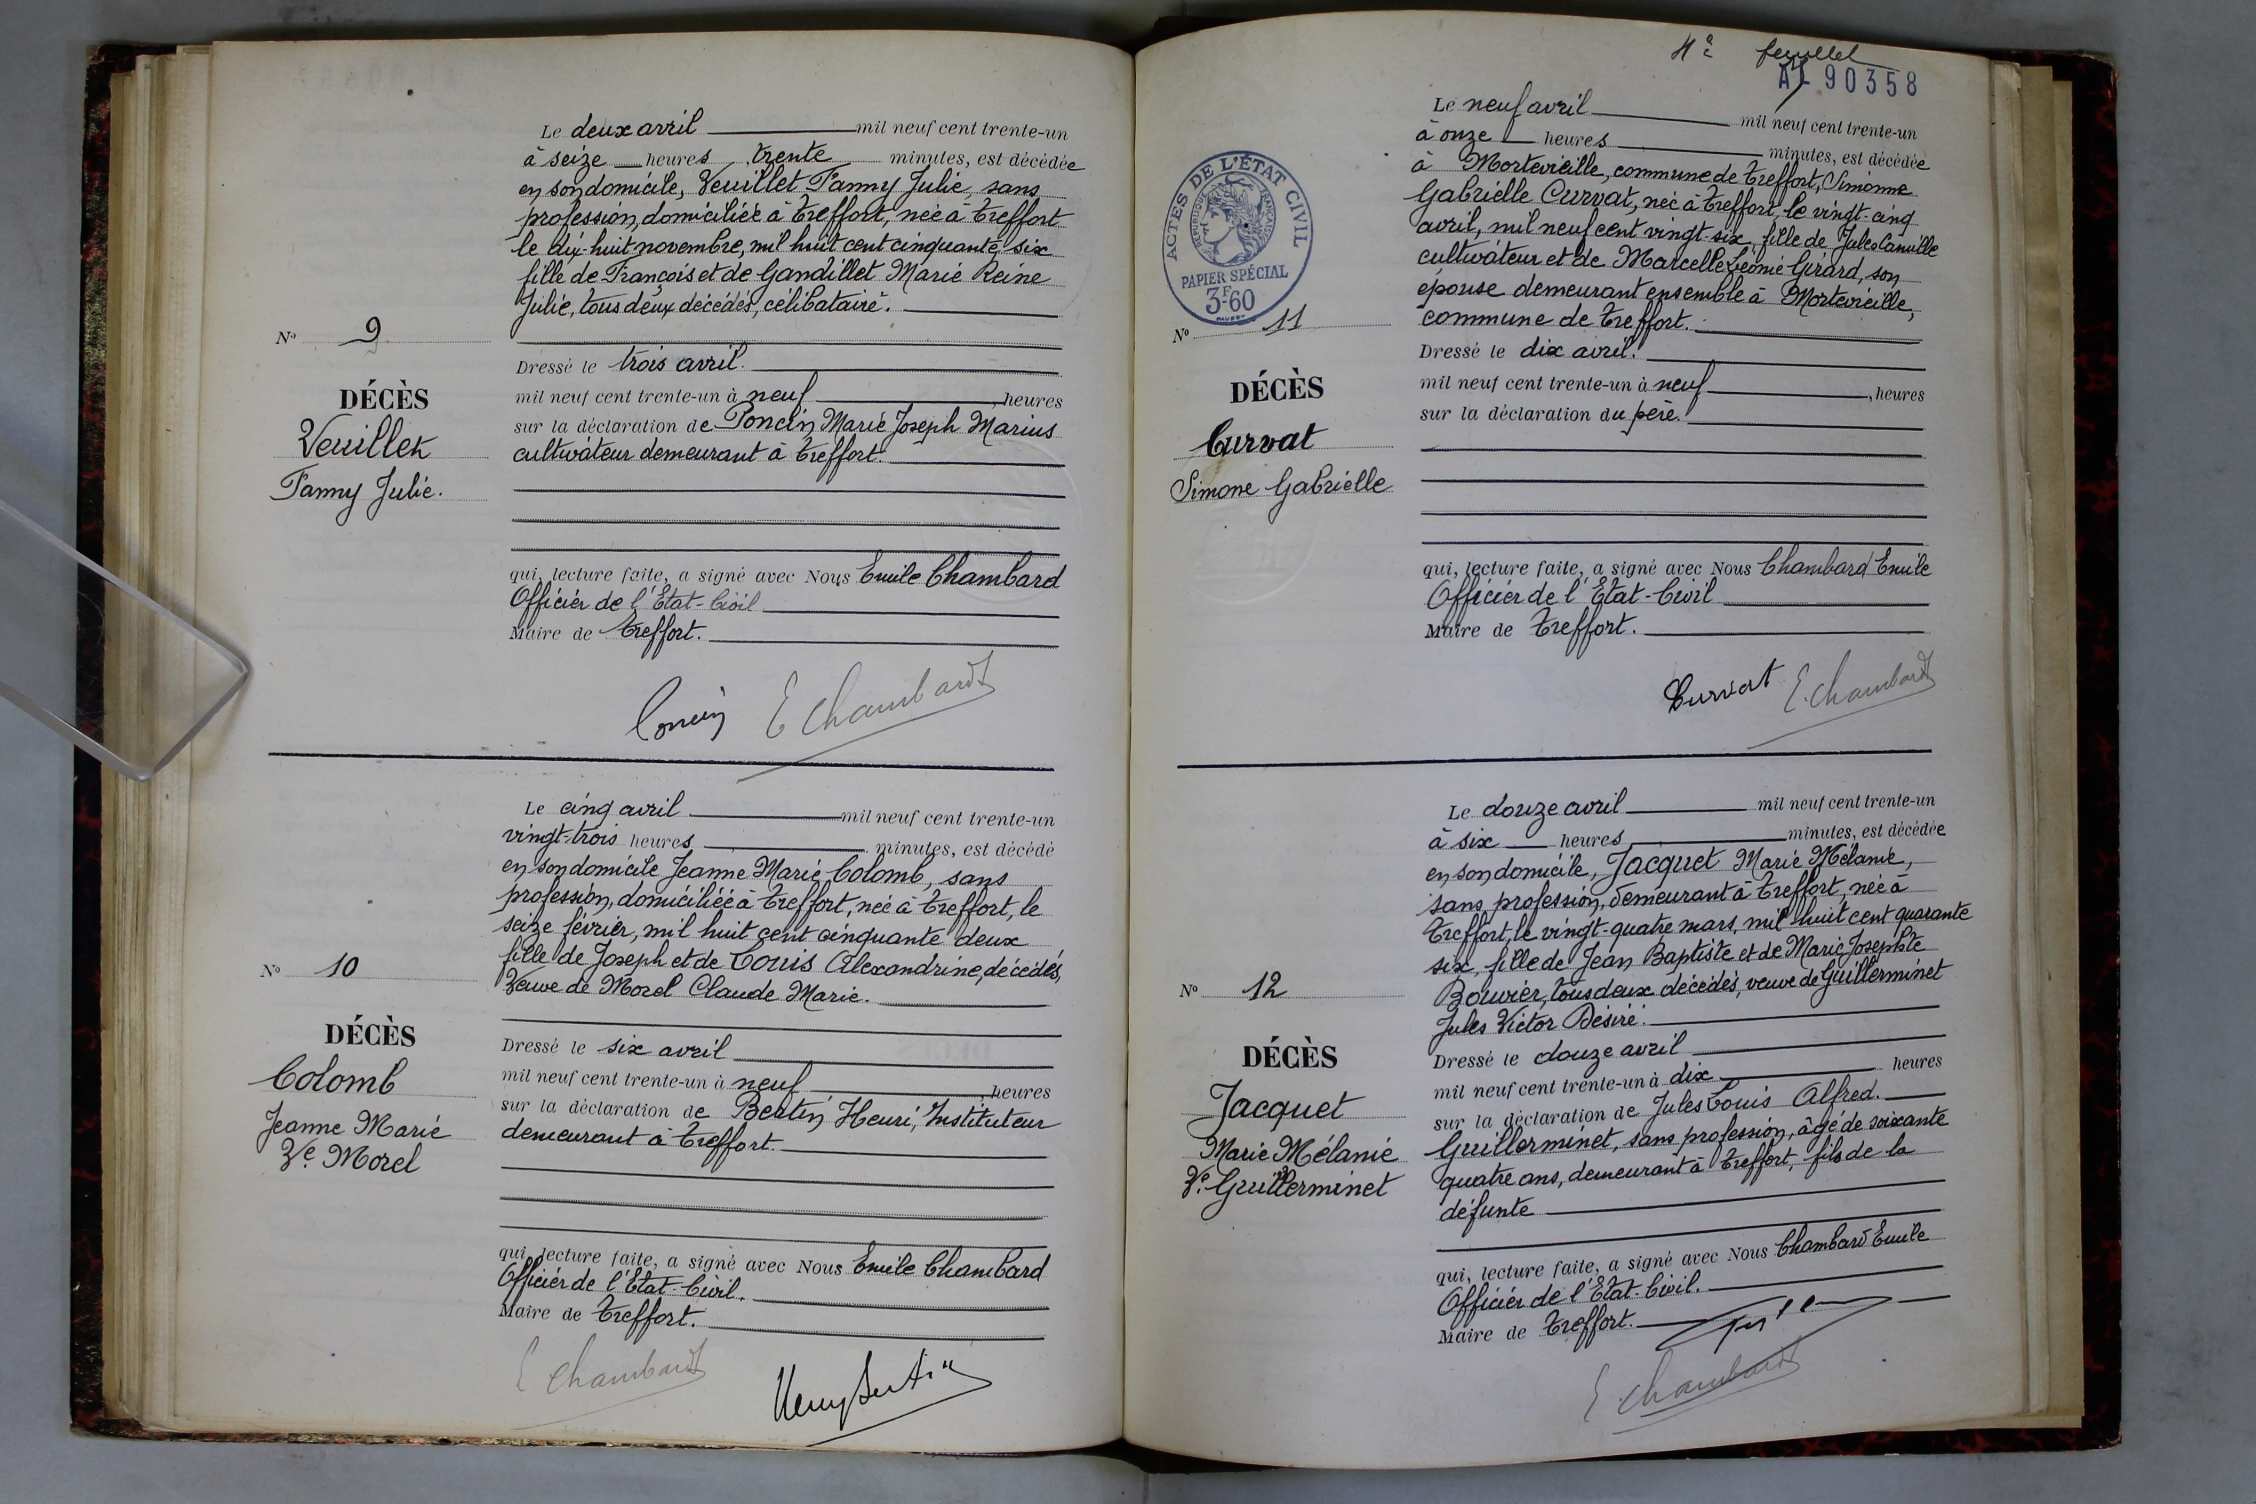 Le deux avril mil neuf cent trente-un
à seize heures trente minutes, est décédée
en son domicile, Veuillet Fanny Julie, sans
profession, domiciliée à Treffort, née à Treffort
le dix-huit novembre, mil huit cent cinquante six
fille de François et de Gandillet Marie Reine
Julie, tous deux décédés, célibataire.
N° 9
DÉCÈS
Veuillet
Fanny Julie.
Dressé le trois avril.
mil neuf cent trente-un à neuf, heures
sur la déclaration de Poncin Marie Joseph Marius
cultivateur demeurant à Treffort.
qui, lecture faite, a signé avec Nous Emile Chambard
Officier de l'Etat-Civil
Maire de Treffort.
Poncin E Chambard
Le cinq avril mil neuf cent trente-un
vingt-trois heures minutes, est décédé
en son domicile Jeanne Marie Colomb, sans
profession, domiciliée à Treffort, née à Treffort, le
seize février, mil huit cent cinquante deux
fille de Joseph et de Louis Alexandrine, décédés,
Veuve de Morel Claude Marie.
N° 10
DÉCÈS
Colomb
Jeanne Marie
Ve Morel
Dressé le six avril
mil neuf cent trente-un à neuf, heures
sur la déclaration de Bertin Henri, Instituteur
demeurant à Treffort.
qui, lecture faite, a signé avec Nous Emile Chambard
Officier de l'Etat-Civil.
Maire de Treffort.
E Chambard Henry Bertin
4e feuillet
AL 90358
ACTES DE L'ÉTAT CIVIL
RÉPUBLIQUE FRANÇAISE
PAPIER SPÉCIAL
3F60
Le neuf avril mil neuf cent trente-un
à onze heures minutes, est décédée
à Mortevieille, commune de Treffort, Simonne
Gabrielle Curvat, née à Treffort, le vingt-cinq
avril, mil neuf cent vingt-six, fille de Jules Camille
cultivateur et de Marcelle Léonie Girard, son
épouse demeurant ensemble à Mortevieille,
commune de Treffort.
N° 11
DÉCÈS
Curvat
Simone Gabrielle
Dressé le dix avril.
mil neuf cent trente-un à neuf, heures
sur la déclaration du père.
qui, lecture faite, a signé avec Nous Chambard Emile
Officier de l'Etat-Civil
Maire de Treffort.
Curvat E. Chambard
Le douze avril mil neuf cent trente-un
à six heures minutes, est décédée
en son domicile, Jacquet Marie Mélanie,
sans profession, demeurant à Treffort, née à
Treffort, le vingt-quatre mars, mil huit cent quarante
six, fille de Jean Baptiste et de Marie Josephte
Bouvier, tous deux décédés, veuve de Guillerminet
Jules Victor Désiré.
N° 12
DÉCÈS
Jacquet
Marie Mélanie
Ve Guillerminet
Dressé le douze avril
mil neuf cent trente-un à dix heures
sur la déclaration de Jules Louis Alfred.
Guillerminet, sans profession, âgé de soixante
quatre ans, demeurant à Treffort, fils de la
défunte
qui, lecture faite, a signé avec Nous Chambard Emile
Officier de l'Etat-Civil.
Maire de Treffort.
E Chambard